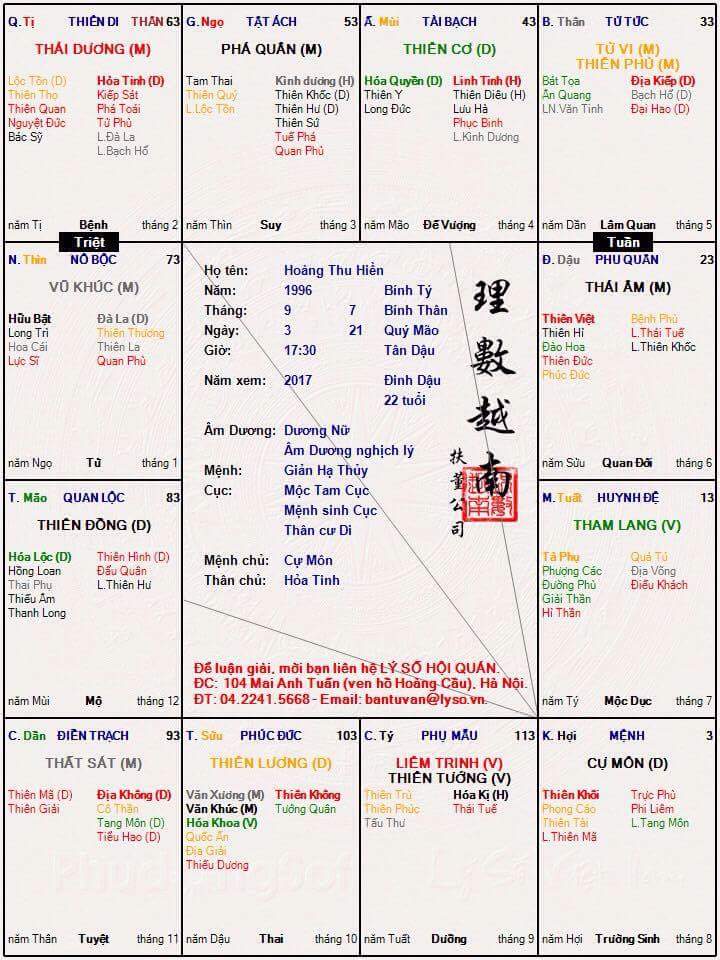 Q.Tị THIÊN DI THÂN 63
THÁI DƯƠNG (M)
Lộc Tồn (Đ) Hỏa Tinh (Đ)
Thiên Thọ Kiếp Sát
Thiên Quan Phá Toái
Nguyệt Đức Tử Phù
Bác Sỹ L.Đà La
L.Bạch Hổ
năm Tị Bệnh tháng 2
G.Ngọ TẬT ÁCH 53
PHÁ QUÂN (M)
Tam Thai Kình dương (H)
Thiên Quý Thiên Khốc (Đ)
L.Lộc Tồn Thiên Hư (Đ)
Thiên Sứ
Tuế Phá
Quan Phủ
năm Thìn Suy tháng 3
Ă. Mùi TÀI BẠCH 43
THIÊN CƠ (Đ)
Hóa Quyền (Đ) Linh Tinh (H)
Thiên Y Thiên Diêu (H)
Long Đức Lưu Hà
Phục Binh
L.Kình Dương
năm Mão Đế Vượng tháng 4
B. Thân TỬ TỨC 33
TỬ VI (M)
THIÊN PHỦ (M)
Bát Tọa Địa Kiếp (Đ)
Ân Quang Bạch Hổ (Đ)
LN.Văn Tinh Đại Hao (Đ)
năm Dần Lâm Quan tháng 5
Triệt
Tuần
N. Thìn NÔ BỘC 73
VŨ KHÚC (M)
Hữu Bật Đà La (Đ)
Long Trì Thiên Thương
Hoa Cái Thiên La
Lực Sĩ Quan Phù
năm Ngọ Tử tháng 1
Họ tên: Hoảng Thu Hiền
Năm: 1996 Bính Tý
Tháng: 9 7 Bính Thân
Ngày: 3 21 Quý Mão
Giờ: 17:30 Tân Dậu
Năm xem: 2017 Đinh Dậu
22 tuổi
Âm Dương: Dương Nữ
Âm Dương nghịch lý
Mệnh: Giản Hạ Thủy
Cục: Mộc Tam Cục
Mệnh sinh Cục
Thân cư Di
Mệnh chủ: Cự Môn
Thân chủ: Hỏa Tinh
理數越南
扶董公司
Để luận giải, mời bạn liên hệ LÝ SỐ HỘI QUÁN.
ĐC: 104 Mai Anh Tuấn (ven hồ Hoàng Cầu), Hà Nội.
ĐT: 04.2241.5668 - Email: bantuvan@lyso.vn.
Đ. Dậu PHU QUÂN 23
THÁI ÂM (M)
Thiên Việt Bệnh Phù
Thiên Hỉ L.Thái Tuế
Đào Hoa L.Thiên Khốc
Thiên Đức
Phúc Đức
năm Sửu Quan Đới tháng 6
T. Mão QUAN LỘC 83
THIÊN ĐỒNG (Đ)
Hóa Lộc (Đ) Thiên Hình (Đ)
Hồng Loan Đẩu Quân
Thai Phụ L.Thiên Hư
Thiếu Âm
Thanh Long
năm Mùi Mộ tháng 12
M.Tuất HUYNH ĐỆ 13
THAM LANG (V)
Tả Phụ Quả Tú
Phượng Các Địa Võng
Đường Phù Điếu Khách
Giải Thần
Hỉ Thần
năm Tý Mộc Dục tháng 7
C. Dần ĐIỀN TRẠCH 93
THẤT SÁT (M)
Thiên Mã (Đ) Địa Không (Đ)
Thiên Giải Cô Thần
Tang Môn (Đ)
Tiểu Hao (Đ)
năm Thân Tuyệt tháng 11
T. Sửu PHÚC ĐỨC 103
THIÊN LƯƠNG (Đ)
Văn Xương (M) Thiên Không
Văn Khúc (M) Tướng Quân
Hóa Khoa (V)
Quốc Ấn
Địa Giải
Thiếu Dương
năm Dậu Thai tháng 10
C. Tý PHỤ MẪU 113
LIÊM TRINH (V)
THIÊN TƯỚNG (V)
Thiên Trù Hóa Kị (H)
Thiên Phúc Thái Tuế
Tấu Thư
năm Tuất Dưỡng tháng 9
K. Hợi MỆNH 3
CỰ MÔN (Đ)
Thiên Khôi Trực Phù
Phong Cáo Phi Liêm
Thiên Tài L.Tang Môn
L.Thiên Mã
năm Hợi Trường Sinh tháng 8